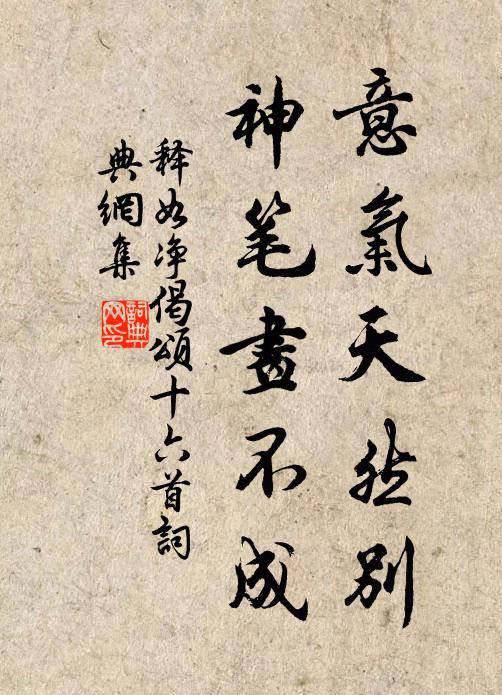 意氣天然別
神笔畫不成
释如净偈頌十六首詞
典網集
詞典网印